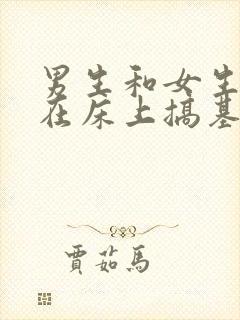 男生和女生
在床上搞基
賈茹馬